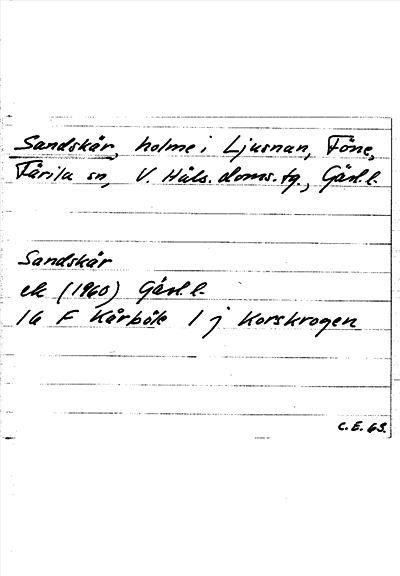 Sandskär, holme i Ljusnan, Föne,
Färila sn, V. Häls. doms.tg., Gävl.l.
Sandskär
ek (1960) Gävl.l.
16 F Kårböle 1 j Korskrogen
C.E. 63.